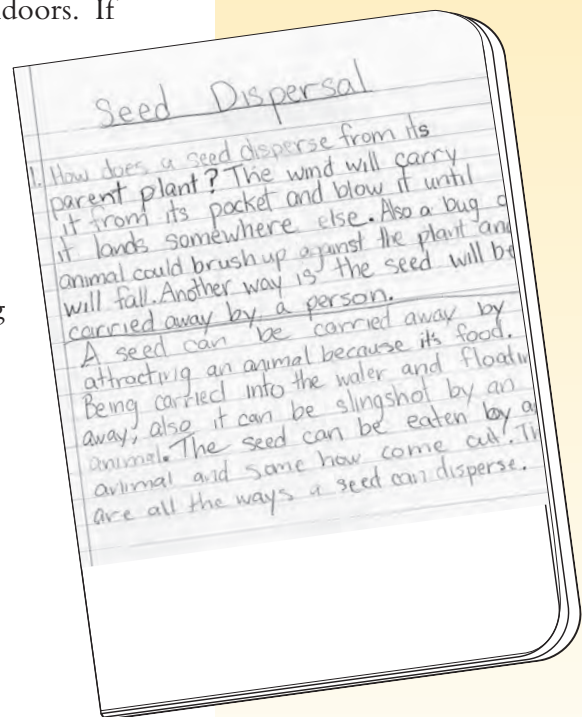 doors. If
g
Seed Dispersal
1. How does a seed disperse from its
parent plant? The wind will carry
it from its pocket and blow it until
it lands somewhere else. Also a bug
animal could brush up against the plant and
will fall. Another way is the seed will be
carried away by a person.
A seed can be carried away by
attracting an animal because its food.
Being carried into the water and floatin
away, also it can be slingshot by an
animal. The seed can be eaten by a
animal and some how come out. Th
are all the ways a seed can disperse.